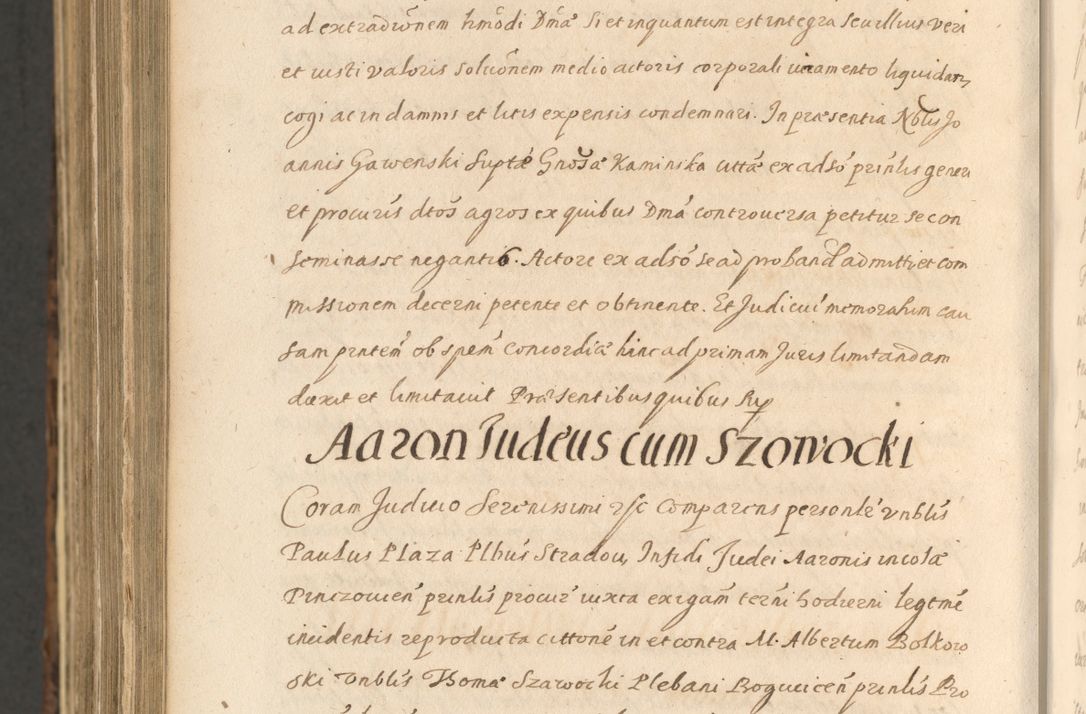 ad extradiõnem hmõdi Dmã Si et inquantum est integra seu illius veri
et iusti valoris soluõnem medio actoris corporali iuramento liquidan,
cogi ac in damnis et litis expensis condemnari. In præsentia Nblis Jo
annis Gawenski Suptæ Gnosæ Kaminska cittæ ex adsó prinlis gener
et procuris dtos agros ex quibus Dmã controuersa petitur se con
seminasse negantis. Actore ex adsó se ad proband admitti et com
missionem decerni petente et obtinente. Et Judiciu memoratum cau
sam prntem ob spem Concordiæ hinc ad primam Juris limitandam
duxit et limitauit Præsentibus quibus Sup
Aaron Judeus cum Szorwocki
Coram Judicio Serenissimi rsc Comparens personlr vnblis
Paulus Plaza Plbus Stradou, Infidi Judei Aaronis incolæ
Pinczouien prinlis procur iuxta exigam terni hodierni legtme
incidentis reproducta cittone in et contra M. Albertum Bolkow
ski Vnblis Thomæ Szawocki Plebani Boguciceń prinlis Pro